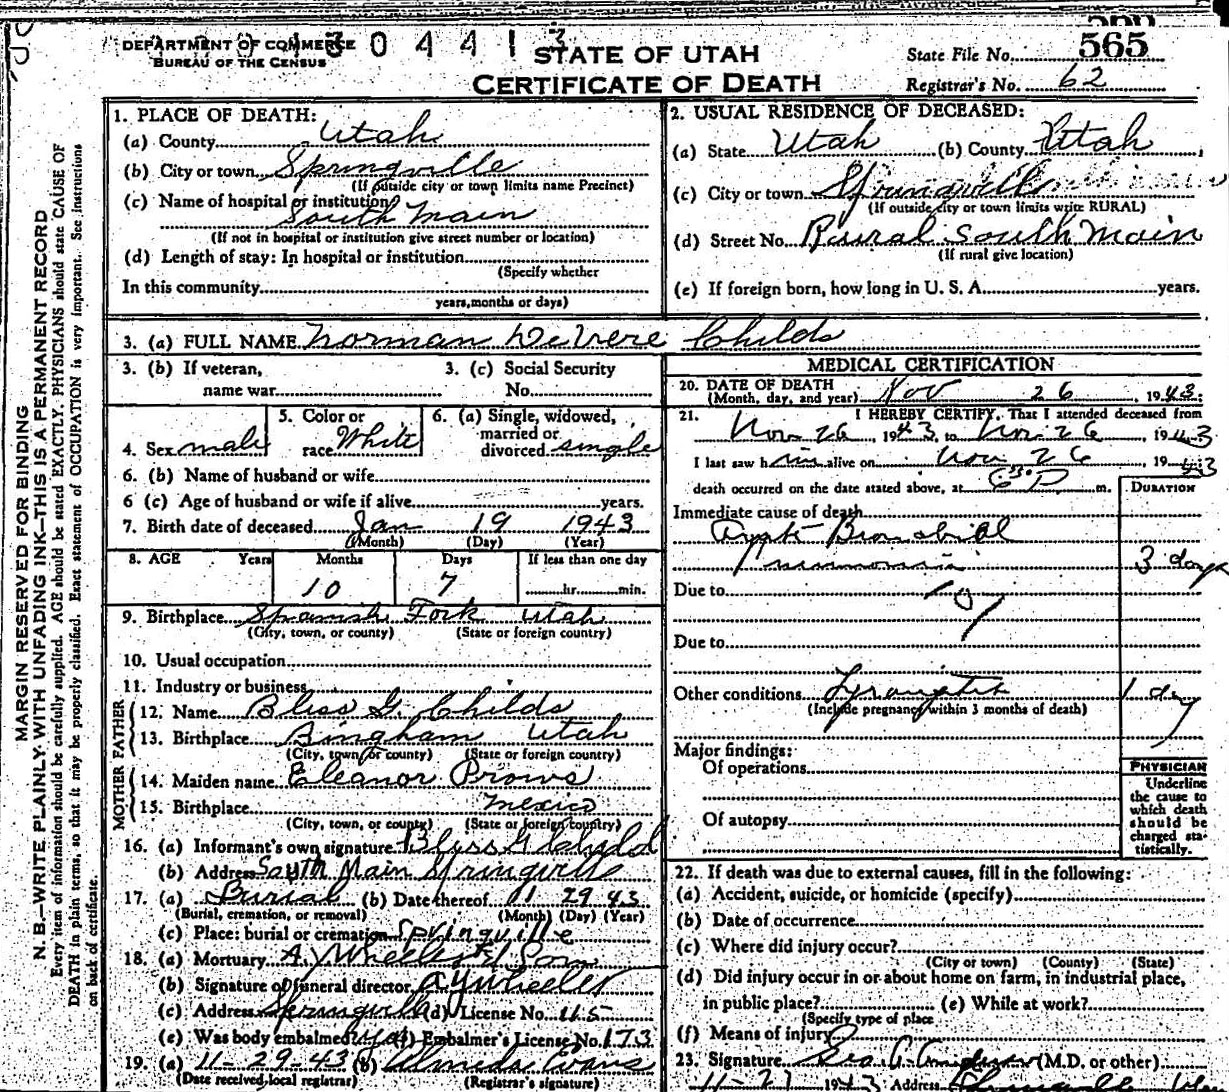 DEPARTMENT OF COMMERCE
BUREAU OF THE CENSUS
304413
STATE OF UTAH
CERTIFICATE OF DEATH
State File No. 565
Registrar's No. 62
MARGIN RESERVED FOR BINDING
N. B.—WRITE PLAINLY WITH UNFADING INK—THIS IS A PERMANENT RECORD
Every item of information should be carefully supplied. AGE should be stated EXACTLY. PHYSICIANS should state CAUSE OF
DEATH in plain terms, so that it may be properly classified. Exact statement of OCCUPATION is very important. See instructions
on back of certificate.
1. PLACE OF DEATH:
(a) County Utah
(b) City or town Springville
(If outside city or town limits name Precinct)
(c) Name of hospital or institution
South Main
(If not in hospital or institution give street number or location)
(d) Length of stay: In hospital or institution
(Specify whether
In this community
years, months or days)
2. USUAL RESIDENCE OF DECEASED:
(a) State Utah (b) County Utah
(c) City or town Springville
(If outside city or town limits write RURAL)
(d) Street No. Rural South Main
(If rural give location)
(e) If foreign born, how long in U. S. A. years.
3. (a) FULL NAME Norman DeVere Childs
3. (b) If veteran,
name war
3. (c) Social Security
No.
4. Sex male
5. Color or
race White
6. (a) Single, widowed,
married or
divorced single
6. (b) Name of husband or wife
6 (c) Age of husband or wife if alive years.
7. Birth date of deceased Jan 19 1943
(Month) (Day) (Year)
8. AGE Years Months Days If less than one day
10 7 hr. min.
9. Birthplace Spanish Fork Utah
(City, town, or county) (State or foreign country)
10. Usual occupation
11. Industry or business
FATHER
12. Name Bliss G. Childs
13. Birthplace Bingham Utah
(City, town or county) (State or foreign country)
MOTHER
14. Maiden name Eleanor Prows
15. Birthplace Mexico
(City, town, or county) (State or foreign country)
16. (a) Informant's own signature Bliss G Child
(b) Address South Main Springville
17. (a) Burial (b) Date thereof 11 29 43
(Burial, cremation, or removal) (Month) (Day) (Year)
(c) Place: burial or cremation Springville
18. (a) Mortuary A. Y. Wheeler
(b) Signature of funeral director A Y Wheeler
(c) Address Springville (d) License No. 115
(e) Was body embalmed? yes (f) Embalmer's License No. 173
19. (a) 11-29-43 (b) Almeda Evans
(Date received local registrar) (Registrar's signature)
MEDICAL CERTIFICATION
20. DATE OF DEATH
(Month, day, and year) Nov 26, 1943
21. I HEREBY CERTIFY, That I attended deceased from
Nov 26, 1943, to Nov 26, 1943
I last saw him alive on Nov 26 1943
death occurred on the date stated above, at 6:30 P m.
DURATION
Immediate cause of death
Bronchial
pneumonia 3 days
Due to
107
Due to
Other conditions 1 day
(Include pregnancy within 3 months of death)
Major findings:
Of operations
Of autopsy
PHYSICIAN
Underline
the cause to
which death
should be
charged sta-
tistically.
22. If death was due to external causes, fill in the following:
(a) Accident, suicide, or homicide (specify)
(b) Date of occurrence
(c) Where did injury occur?
(City or town) (County) (State)
(d) Did injury occur in or about home on farm, in industrial place,
in public place? (e) While at work?
(Specify type of place
(f) Means of injury
23. Signature Geo A Anderson (M.D. or other)
11-27 1943 Address